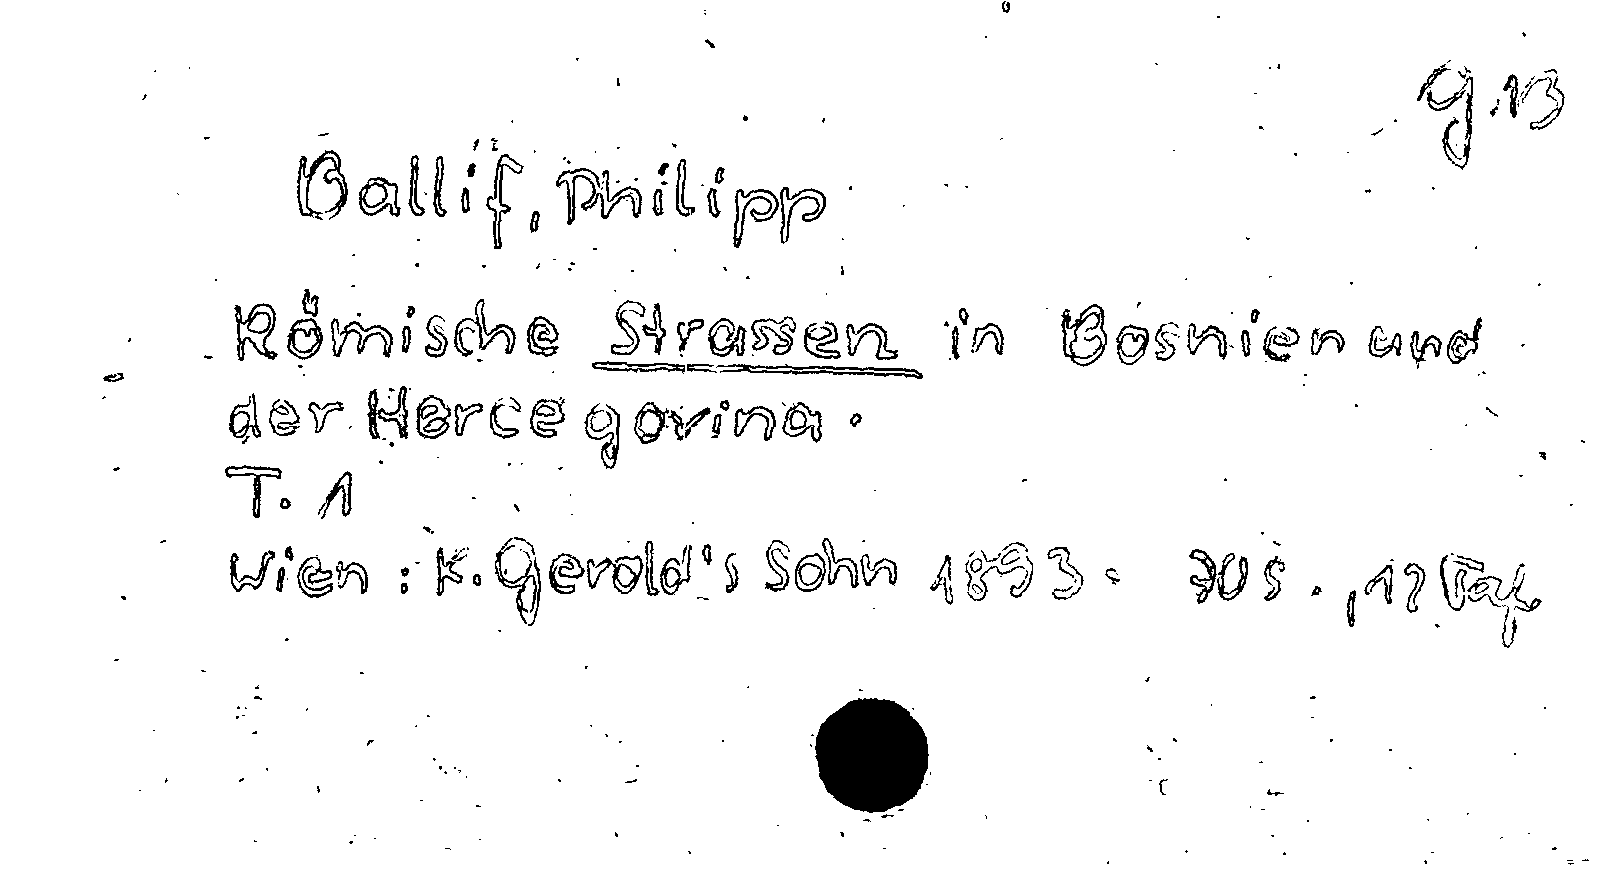 g.13
Ballif, Philipp
Römische Strassen in Bosnien und
der Hercegovina.
T. 1
Wien: K. Gerold's Sohn 1893. 70 S., 12 Taf.